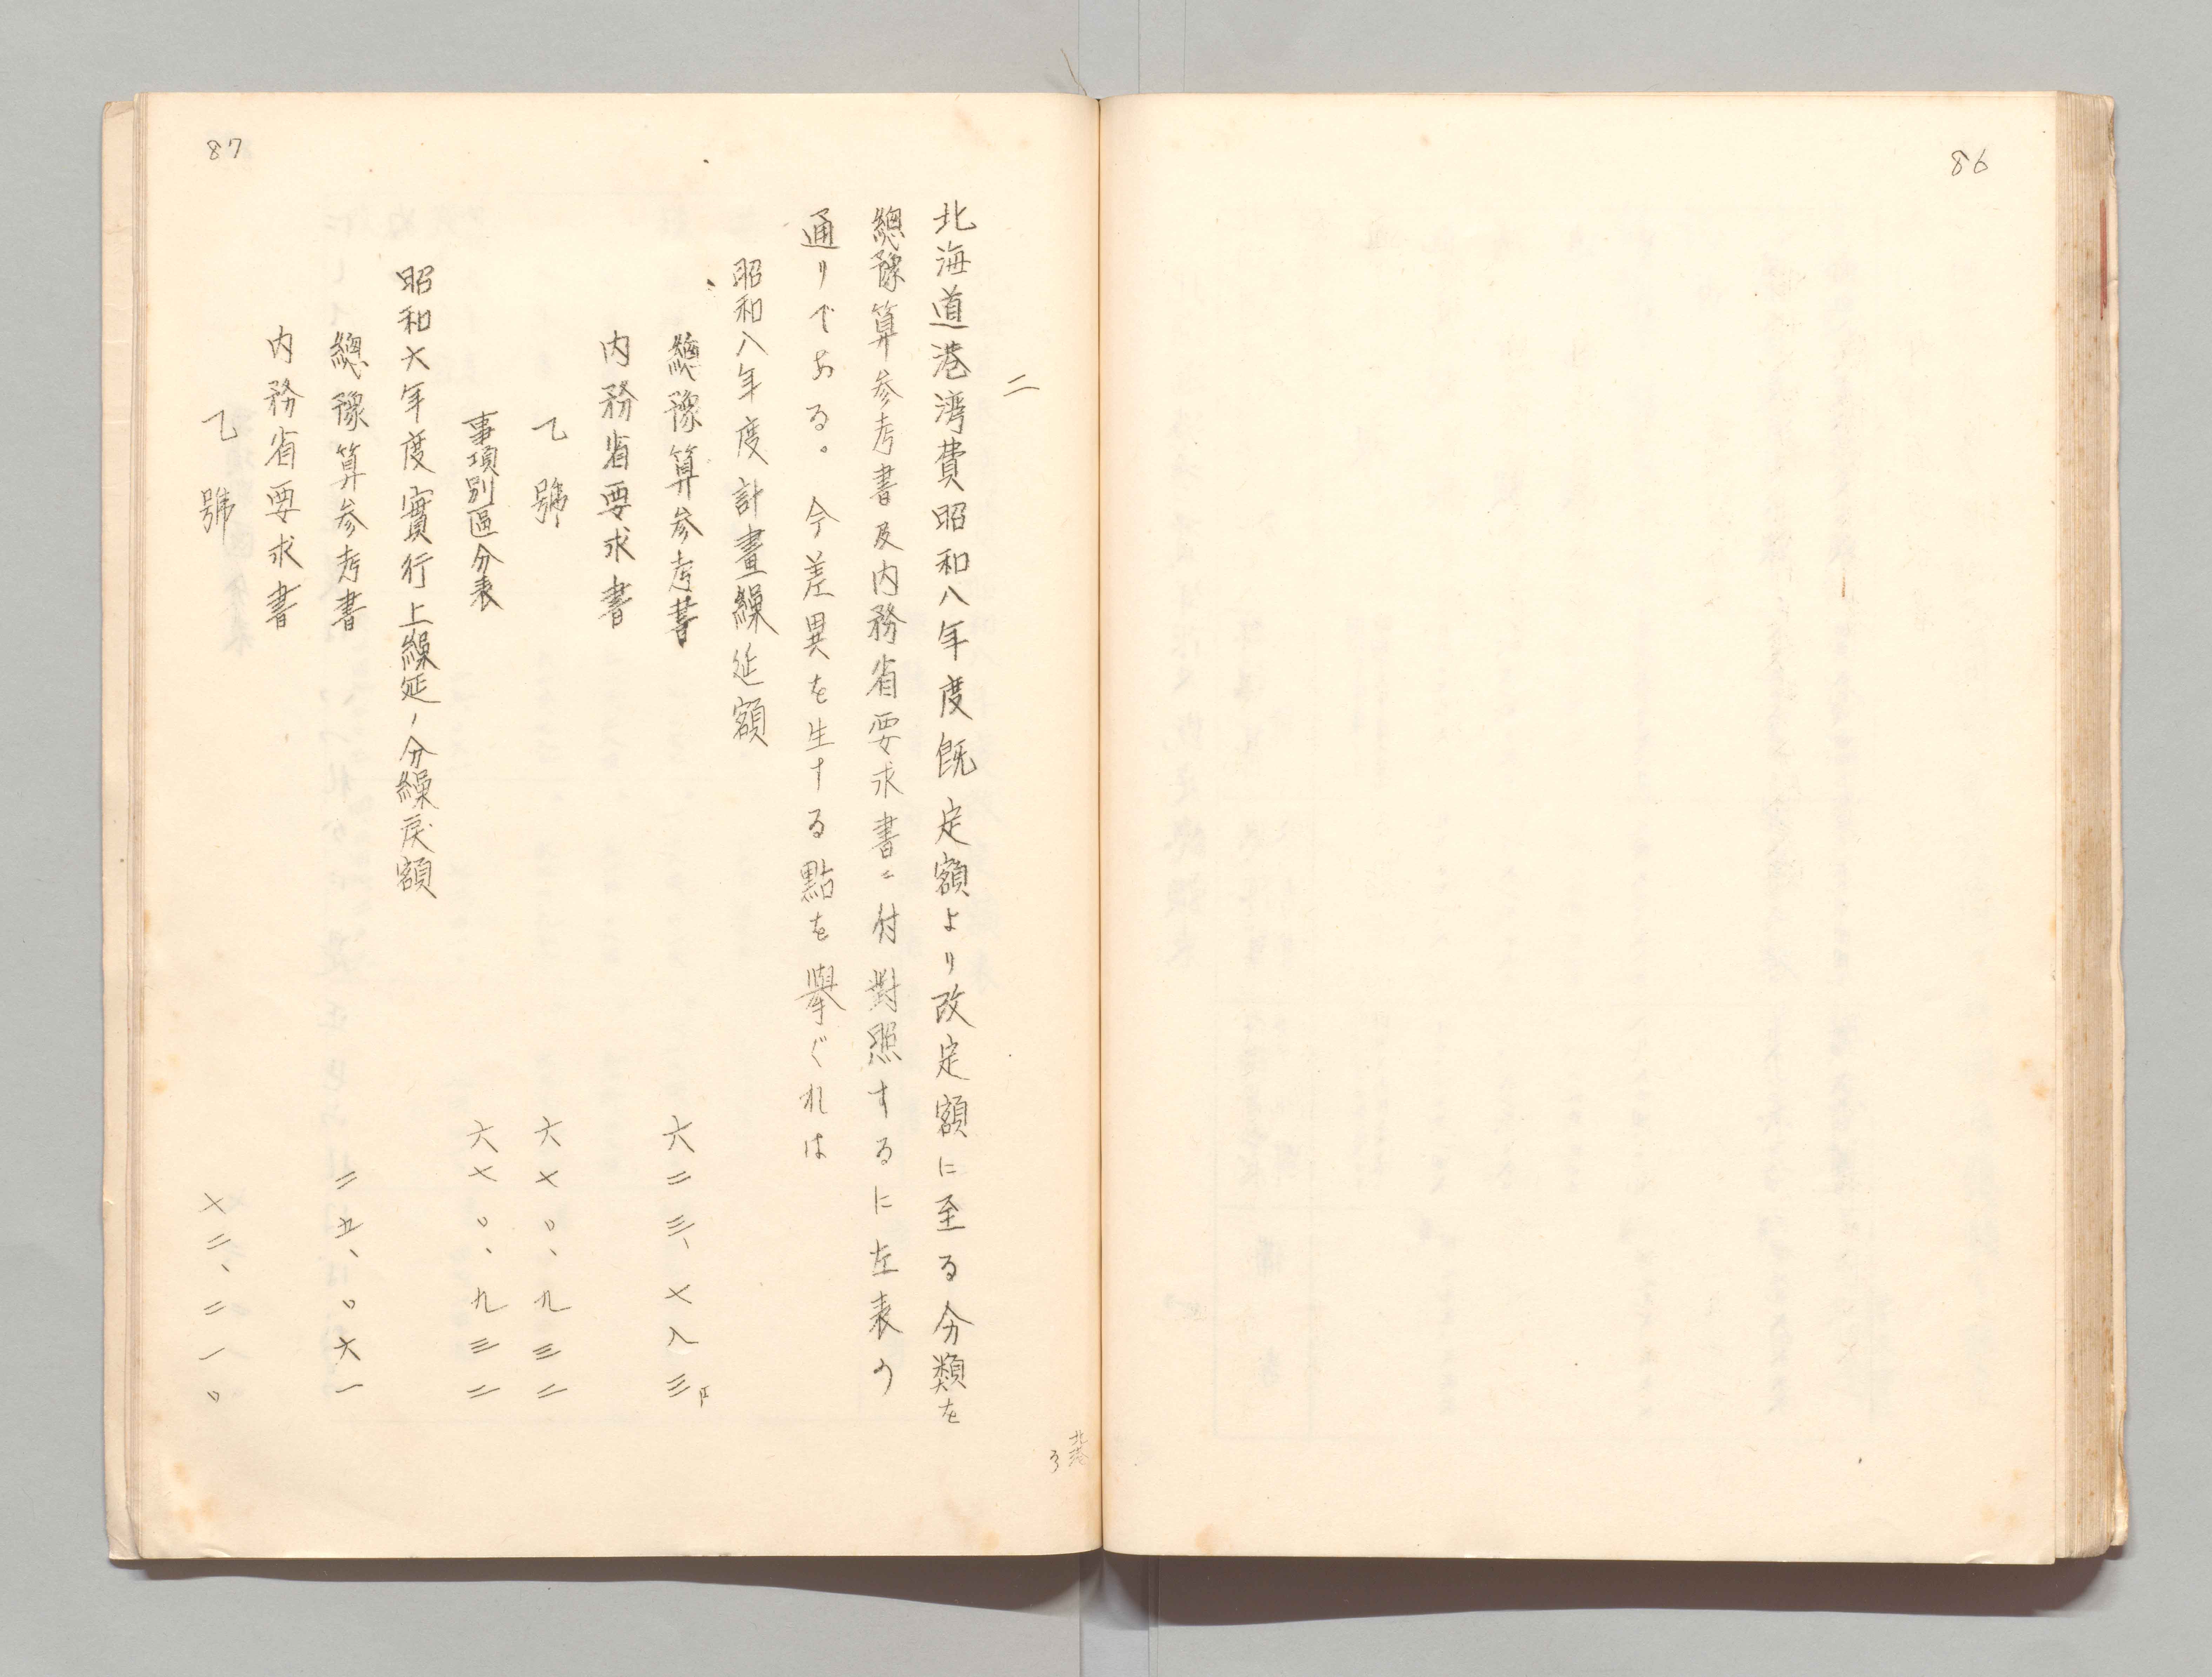 86
87
二
北海道港湾費昭和八年度既定額より改定額に至る分類を
總豫算参考書及内務省要求書ニ付對照するに左表の
通りである。今差異を生する點を擧ぐれは
昭和八年度計畫繰延額
總豫算参考書 六二三、七八三円
内務省要求書
乙號 六七〇、九三二
事項別區分表 六七〇、九三二
昭和六年度實行上繰延ノ分繰戻額
總豫算参考書 二五、〇六一
内務省要求書
乙號 七二、二一〇
北港
3